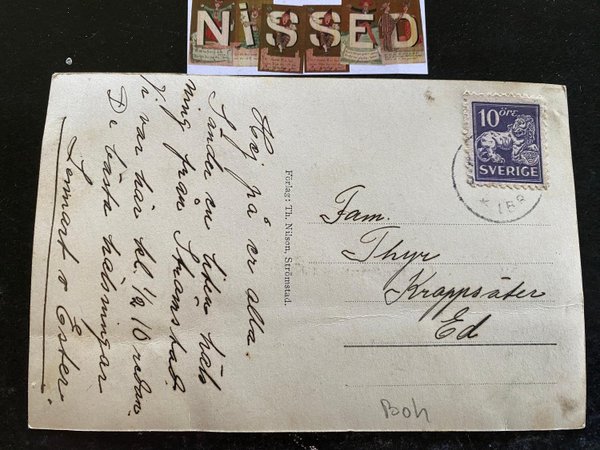 NiSSED
Hej på er alla
Så sända en liten häls
ning från Strömstad
Vi var här kl. 1/2 10 redan
De bästa hälsningar
Lennart o Ester
Förlag: Th. Nilson, Strömstad.
10 ÖRE
SVERIGE
Fam.
Thyr
Kroppsäter
Ed
Boh